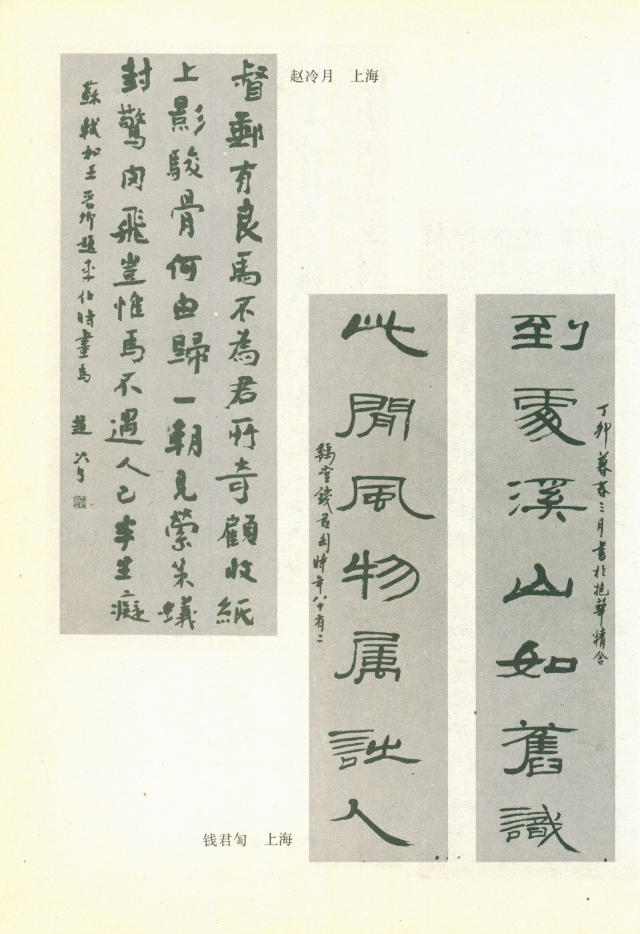 赵冷月 上海
督郵有良馬不為君所奇顧收紙
上影駿骨何由歸一朝見縈策蟻
封驚肉飛豈惟馬不遇人已半生癡
蘇軾和王晉卿題李伯時畫馬 趙冷月
丁卯暮春三月書於抱華精舍
到處溪山如舊識
此閒風物属詩人
豫堂錢君匋時年八十有二
钱君匋 上海